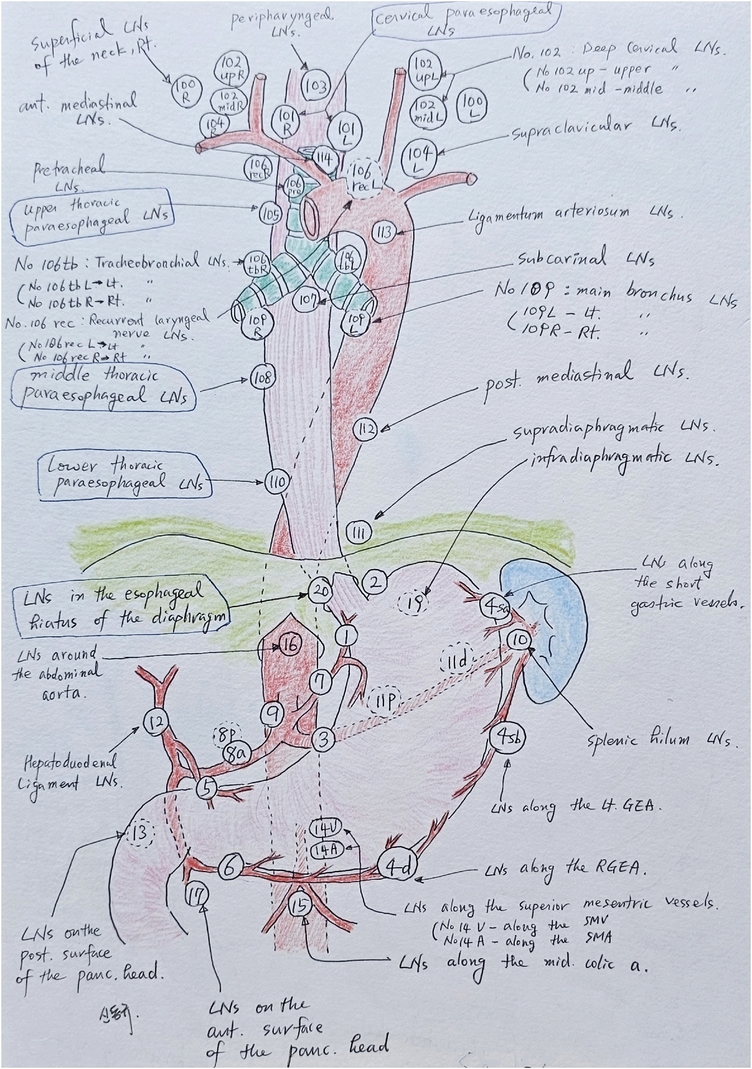 peripharyngeal
LNs.
cervical paraesophageal
LNs
Superficial LNs
of the neck, Rt.
No. 102 : Deep cervical LNs.
(No 102 up - upper 〃
No 102 mid - middle 〃
100
R
102
upR
102
midR
104
R
103
101
R
101
L
102
upL
102
midL
100
L
ant. mediastinal
LNs.
Supraclavicular LNs.
104
L
114
106
recL
106
recR
106
pre
Pretracheal
LNs.
upper thoracic
paraesophageal LNs
105
Ligamentum arteriosum LNs.
113
No 106tb : Tracheobronchial LNs.
(No 106tb L→Lt. 〃
No 106tb R→Rt. 〃
106
tbR
106
tbL
Subcarinal LNs
107
No 109 : main bronchus LNs
(109L - Lt. 〃
109R - Rt. 〃
109
R
109
L
No. 106 rec : Recurrent laryngeal
nerve LNs.
(No 106 rec L→Lt 〃
No 106 rec R→Rt 〃
middle thoracic
paraesophageal LNs
108
post. mediastinal LNs.
112
supradiaphragmatic LNs.
infradiaphragmatic LNs.
Lower thoracic
paraesophageal LNs
110
111
LNs in the esophageal
hiatus of the diaphragm
20
2
19
4sa
LNs along
the short
gastric vessels.
LNs around
the abdominal
aorta.
16
1
10
11d
7
11p
12
9
8p
8a
3
4sb
Splenic hilum LNs.
Hepatoduodenal
Ligament LNs.
5
LNs along the Lt. GEA.
13
14V
14A
6
4d
LNs along the RGEA.
17
15
LNs along the superior mesentric vessels.
(No 14 V - along the SMV
No 14 A - along the SMA
LNs along the mid. colic a.
LNs on the
post. surface
of the panc. head.
LNs on the
ant. surface
of the panc. head